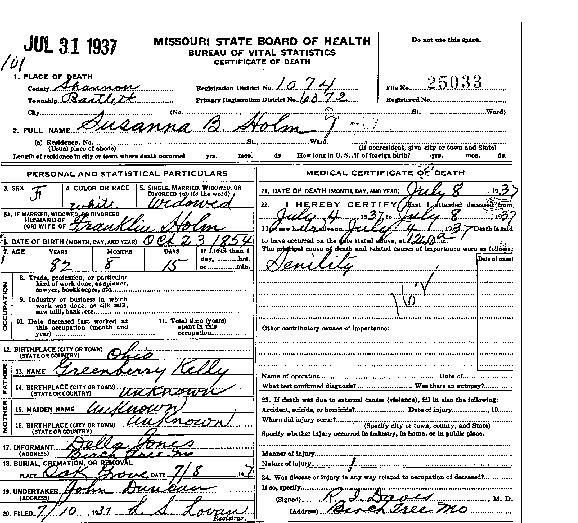 JUL 31 1937
MISSOURI STATE BOARD OF HEALTH
BUREAU OF VITAL STATISTICS
CERTIFICATE OF DEATH
Do not use this space.
1. PLACE OF DEATH
County Shannon Registration District No. 1074 File No. 25033
Township Bartlett Primary Registration District No. 6072 Registered No.
City (No. St. Ward)
2. FULL NAME Susanna B Holm
(a) Residence. No. St. Ward.
(Usual place of abode) (If nonresident, give city or town and State)
Length of residence in city or town where death occurred yrs. mos. ds. How long in U. S., if of foreign birth? yrs. mos. ds.
PERSONAL AND STATISTICAL PARTICULARS
3. SEX F 4. COLOR OR RACE white 5. SINGLE, MARRIED, WIDOWED, OR DIVORCED (write the word) Widowed
5A. IF MARRIED, WIDOWED, OR DIVORCED
HUSBAND OF
(OR) WIFE OF Franklin Holm
6. DATE OF BIRTH (MONTH, DAY, AND YEAR) Oct 23 1854
7. AGE YEARS MONTHS DAYS If LESS than 1 day, hrs. or min.
82 8 15
OCCUPATION
8. Trade, profession, or particular kind of work done, as spinner, sawyer, bookkeeper, etc.
9. Industry or business in which work was done, as silk mill, saw mill, bank, etc.
10. Date deceased last worked at this occupation (month and year)
11. Total time (years) spent in this occupation
12. BIRTHPLACE (CITY OR TOWN) Ohio
(STATE OR COUNTRY)
FATHER
13. NAME Greenberry Kelly
14. BIRTHPLACE (CITY OR TOWN) unknown
(STATE OR COUNTRY)
MOTHER
15. MAIDEN NAME unknown
16. BIRTHPLACE (CITY OR TOWN) unknown
(STATE OR COUNTRY)
17. INFORMANT Della Jones
(ADDRESS) Birch Tree Mo
18. BURIAL, CREMATION, OR REMOVAL
PLACE Oak Grove DATE 7/8
19. UNDERTAKER John Duncan
(ADDRESS)
20. FILED 7/10 1937 L. S. Lovan
Registrar.
MEDICAL CERTIFICATE OF DEATH
21. DATE OF DEATH (MONTH, DAY, AND YEAR) July 8 1937
22. I HEREBY CERTIFY, That I attended deceased from
July 4 1937 to July 8 1937
July 4 1937 Death is said
to have occurred on the date stated above, at
The principal cause of death and related causes of importance were as follows:
Date of onset
Senility
162
Other contributory causes of importance:
Name of operation Date of
What test confirmed diagnosis? Was there an autopsy?
23. If death was due to external causes (violence), fill in also the following:
Accident, suicide, or homicide? Date of injury 19
Where did injury occur?
(Specify city or town, county, and State)
Specify whether injury occurred in industry, in home, or in public place.
Manner of injury
Nature of injury
24. Was disease or injury in any way related to occupation of deceased?
If so, specify
(Signed) R. L. Davis M. D.
(Address) Birch Tree Mo